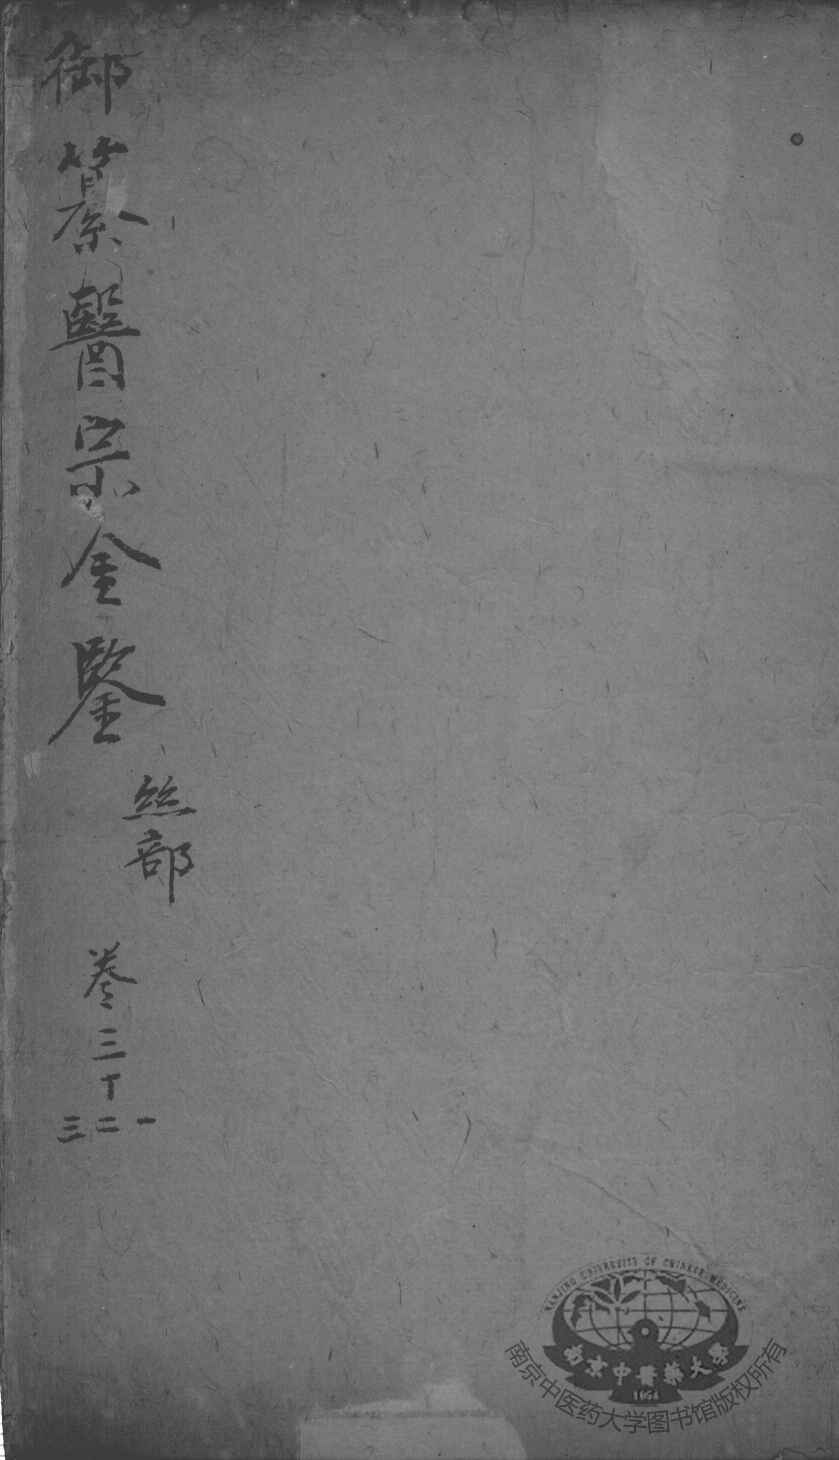 御纂醫宗金鑒
絲部
卷三十
一二三
NANJING UNIVERSITY OF CHINESE MEDICINE
南京中醫藥大學
1954
南京中医药大学图书馆版权所有